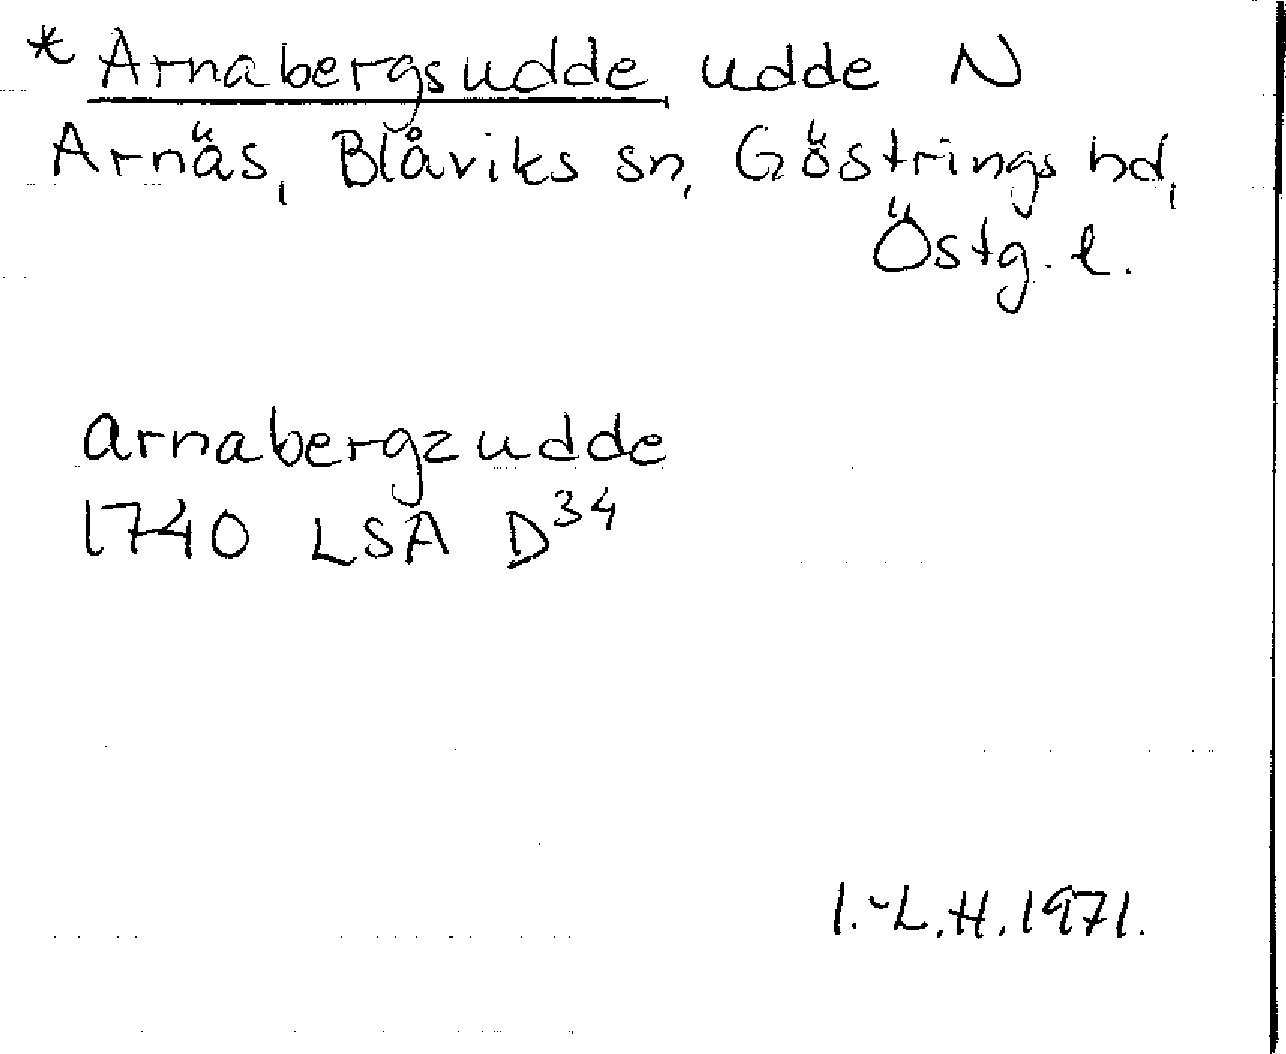 * Arnabergsudde udde N
Arnäs, Blåviks sn, Göstrings hd,
Östg. l.
arnabergzudde
1740 LSA D³⁴
I.-L.H. 1971.